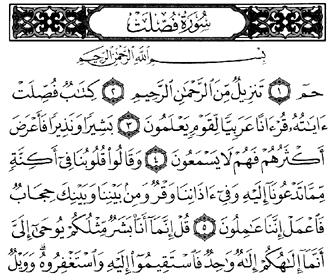 سُورَةُ فُصِّلَتْ
بِسْمِ اللَّهِ الرَّحْمَٰنِ الرَّحِيمِ
حمٓ ١ تَنزِيلٌ مِّنَ ٱلرَّحْمَٰنِ ٱلرَّحِيمِ ٢ كِتَٰبٌ فُصِّلَتْ
ءَايَٰتُهُۥ قُرْءَانًا عَرَبِيًّا لِّقَوْمٍ يَعْلَمُونَ ٣ بَشِيرًا وَنَذِيرًا فَأَعْرَضَ
أَكْثَرُهُمْ فَهُمْ لَا يَسْمَعُونَ ٤ وَقَالُوا۟ قُلُوبُنَا فِىٓ أَكِنَّةٍ
مِّمَّا تَدْعُونَآ إِلَيْهِ وَفِىٓ ءَاذَانِنَا وَقْرٌ وَمِنۢ بَيْنِنَا وَبَيْنِكَ حِجَابٌ
فَٱعْمَلْ إِنَّنَا عَٰمِلُونَ ٥ قُلْ إِنَّمَآ أَنَا۠ بَشَرٌ مِّثْلُكُمْ يُوحَىٰٓ إِلَىَّ
أَنَّمَآ إِلَٰهُكُمْ إِلَٰهٌ وَٰحِدٌ فَٱسْتَقِيمُوٓا۟ إِلَيْهِ وَٱسْتَغْفِرُوهُ ۗ وَوَيْلٌ